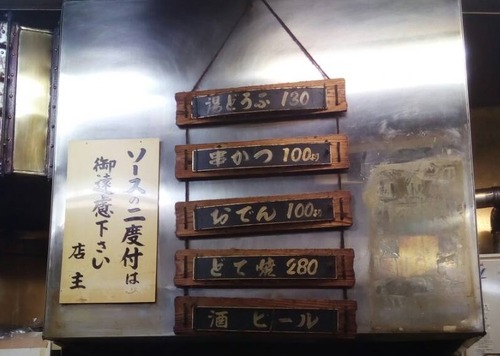 湯どうふ 130
串かつ 100より
おでん 100より
どて焼 280
酒 ビール
ソースの二度付は
御遠慮下さい
店主